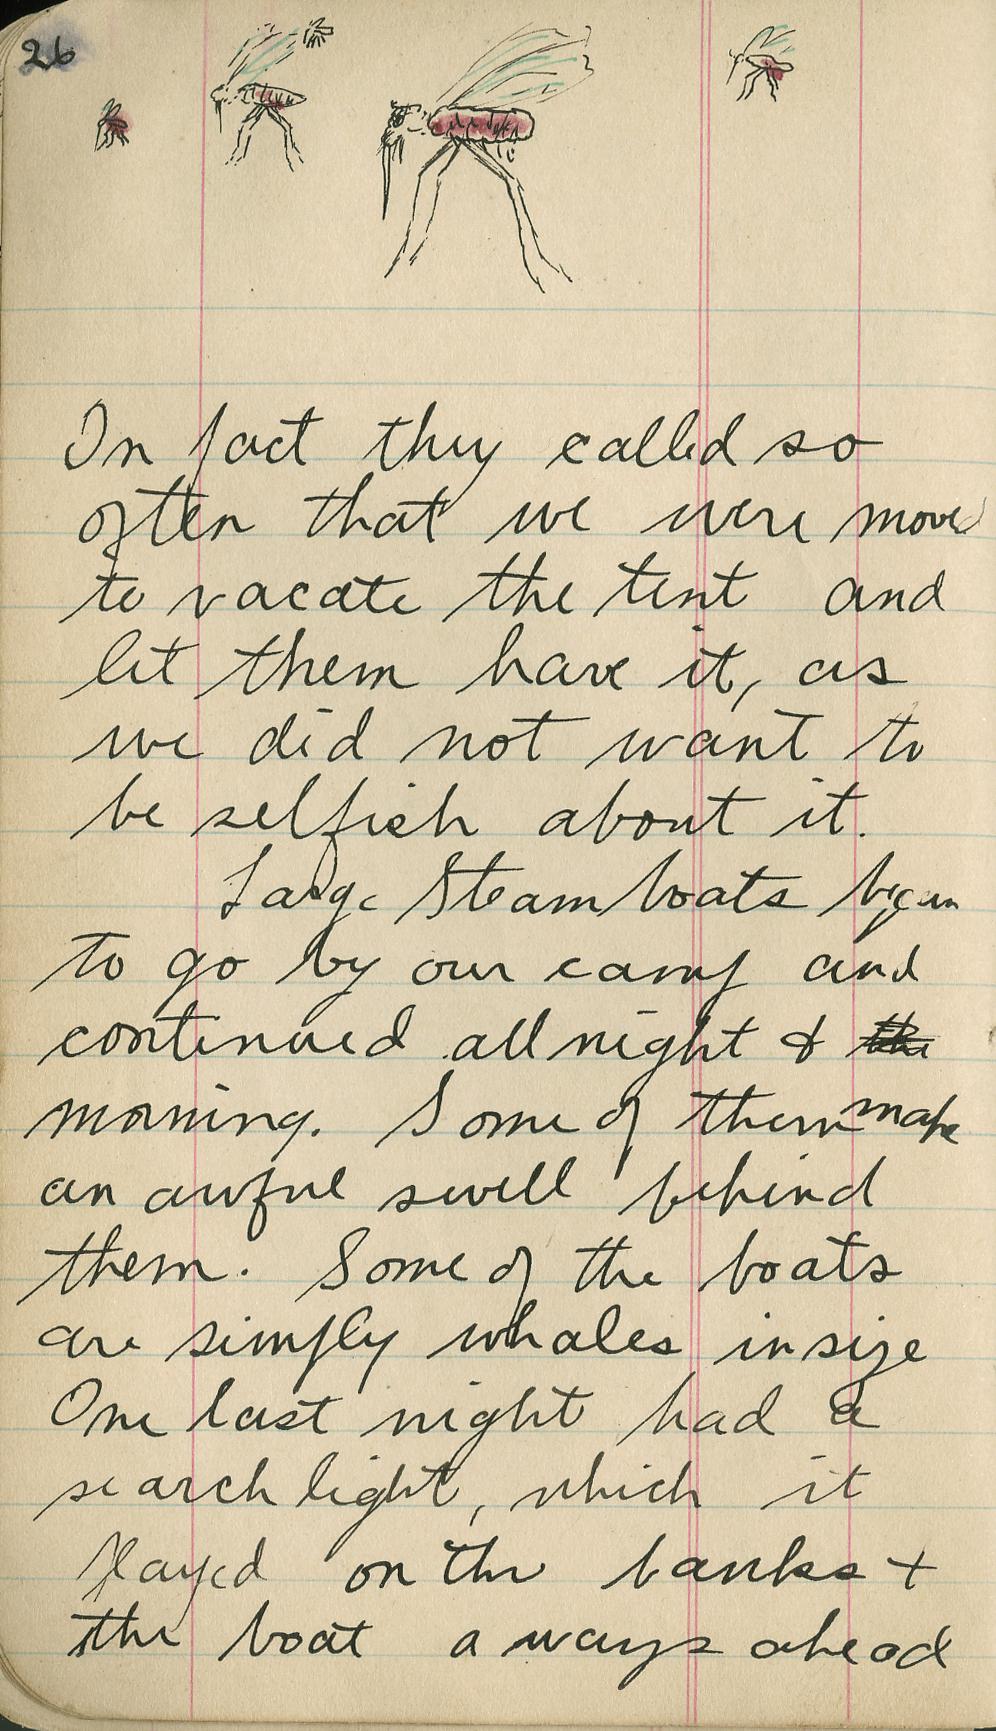 26
In fact they called so
often that we were moved
to vacate the tent and
let them have it, as
we did not want to
be selfish about it.
Large Steamboats began
to go by our camp and
continued all night & the
morning. Some of them make
an awful swell behind
them. Some of the boats
are simply whales in size
One last night had a
searchlight, which it
played on the banks +
the boat a ways ahead